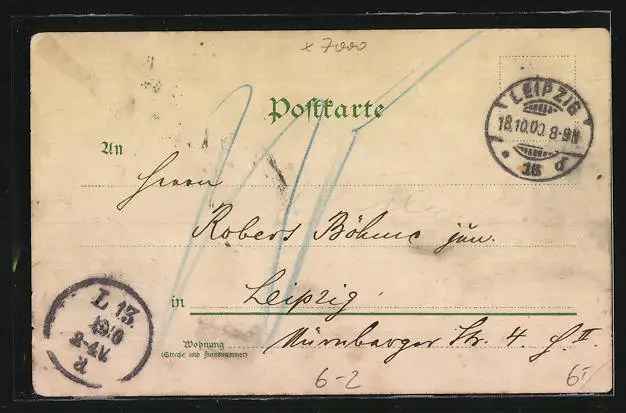 x 7000
Postkarte
LEIPZIG
18.10.00. 8-9N
* 13 d
An
Herrn
Robert Böhme jun.
in Leipzig
Wohnung Nürnberger Str. 4 II
(Straße und Hausnummer)
L 13.
19/10
d
6-2